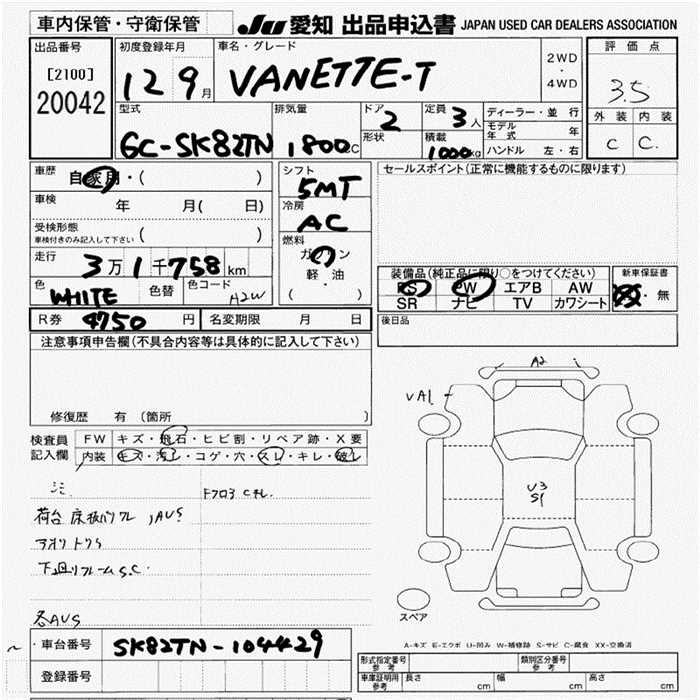 車内保管・守衛保管 JU 愛知 出品申込書 JAPAN USED CAR DEALERS ASSOCIATION
出品番号 初度登録年月 車名・グレード 2WD・4WD 評価点
[2100] 12 9月 VANETTE-T 3.5
20042 外装 内装
型式 排気量 ドア 定員 ディーラー・並行 C C.
GC-SK82TN 1800CC 2 3人 モデル年式 年
形状 積載 1000kg ハンドル 左・右
車歴 自家用・( ) シフト 5MT セールスポイント(正常に機能するものに限ります)
車検 年 月( 日) 冷房 AC
受検形態
車検付きのみ記入して下さい 燃料 ガソリン
走行 3万1千758km 軽・油
( )
装備品(純正品に限り○をつけてください) 新車保証書
色 WHITE 色替 色コード A2W PS PW エアB AW ・無
SR ナビ TV カワシート
R券 9750円 名変期限 月 日 後日品
注意事項申告欄(不具合内容等は具体的に記入して下さい)
修復歴 有(箇所
検査員記入欄 FW キズ・飛石・ヒビ割・リペア跡・X要
内装 キズ・汚レ・コゲ・穴・スレ・キレ・破レ
A2
VA1
U3
S1
シミ
荷台 床板 AUS
アオリ
下廻リフレームS.C.
各AUS
スペア
A-キズ E-エクボ U-凹み W-補修跡 S-サビ C-腐食 XX-交換済
車台番号 SK82TN-104429
登録番号
形式指定番号 参考 類別区分番号 参考
車庫証明用 参考 長さ cm 幅 cm 高さ cm